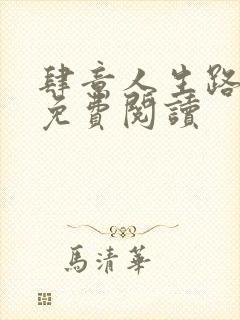 肆意人生路
免費閱讀
馬清華